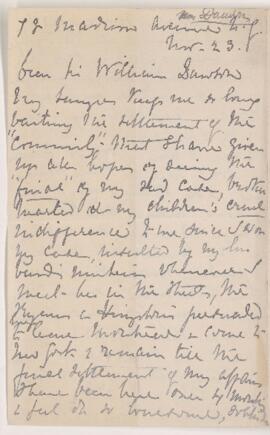 Mrs Dawson
72 Madison Avenue N.Y.
Nov. 23.
Dear Sir William Dawson
My lawyers keep me so long
waiting the settlement of the
"Community" that I have given
up all hopes of seeing the
"final" of my sad case, broken
hearted at my children's cruel
indifference to me since I won
my case, insulted by my hus
bands whenever I
meet her in the streets, the
in persuaded
me to leave Montreal & come to
New York & remain till the
final settlement of my affairs
I have been here over
& feel oh so lonesome,